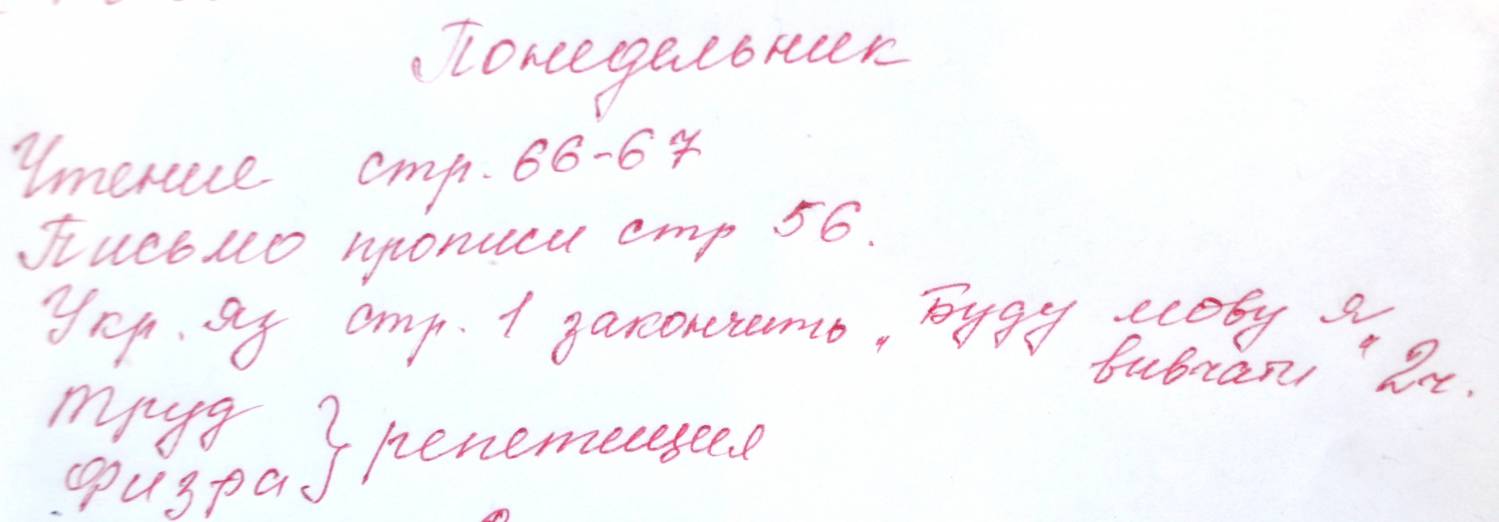 Понедельник
Чтение стр. 66-67
Письмо прописи стр 56.
Укр. яз стр. 1 закончить „Буду мову я
вивчати" 2ч.
Труд
Физра } репетиция